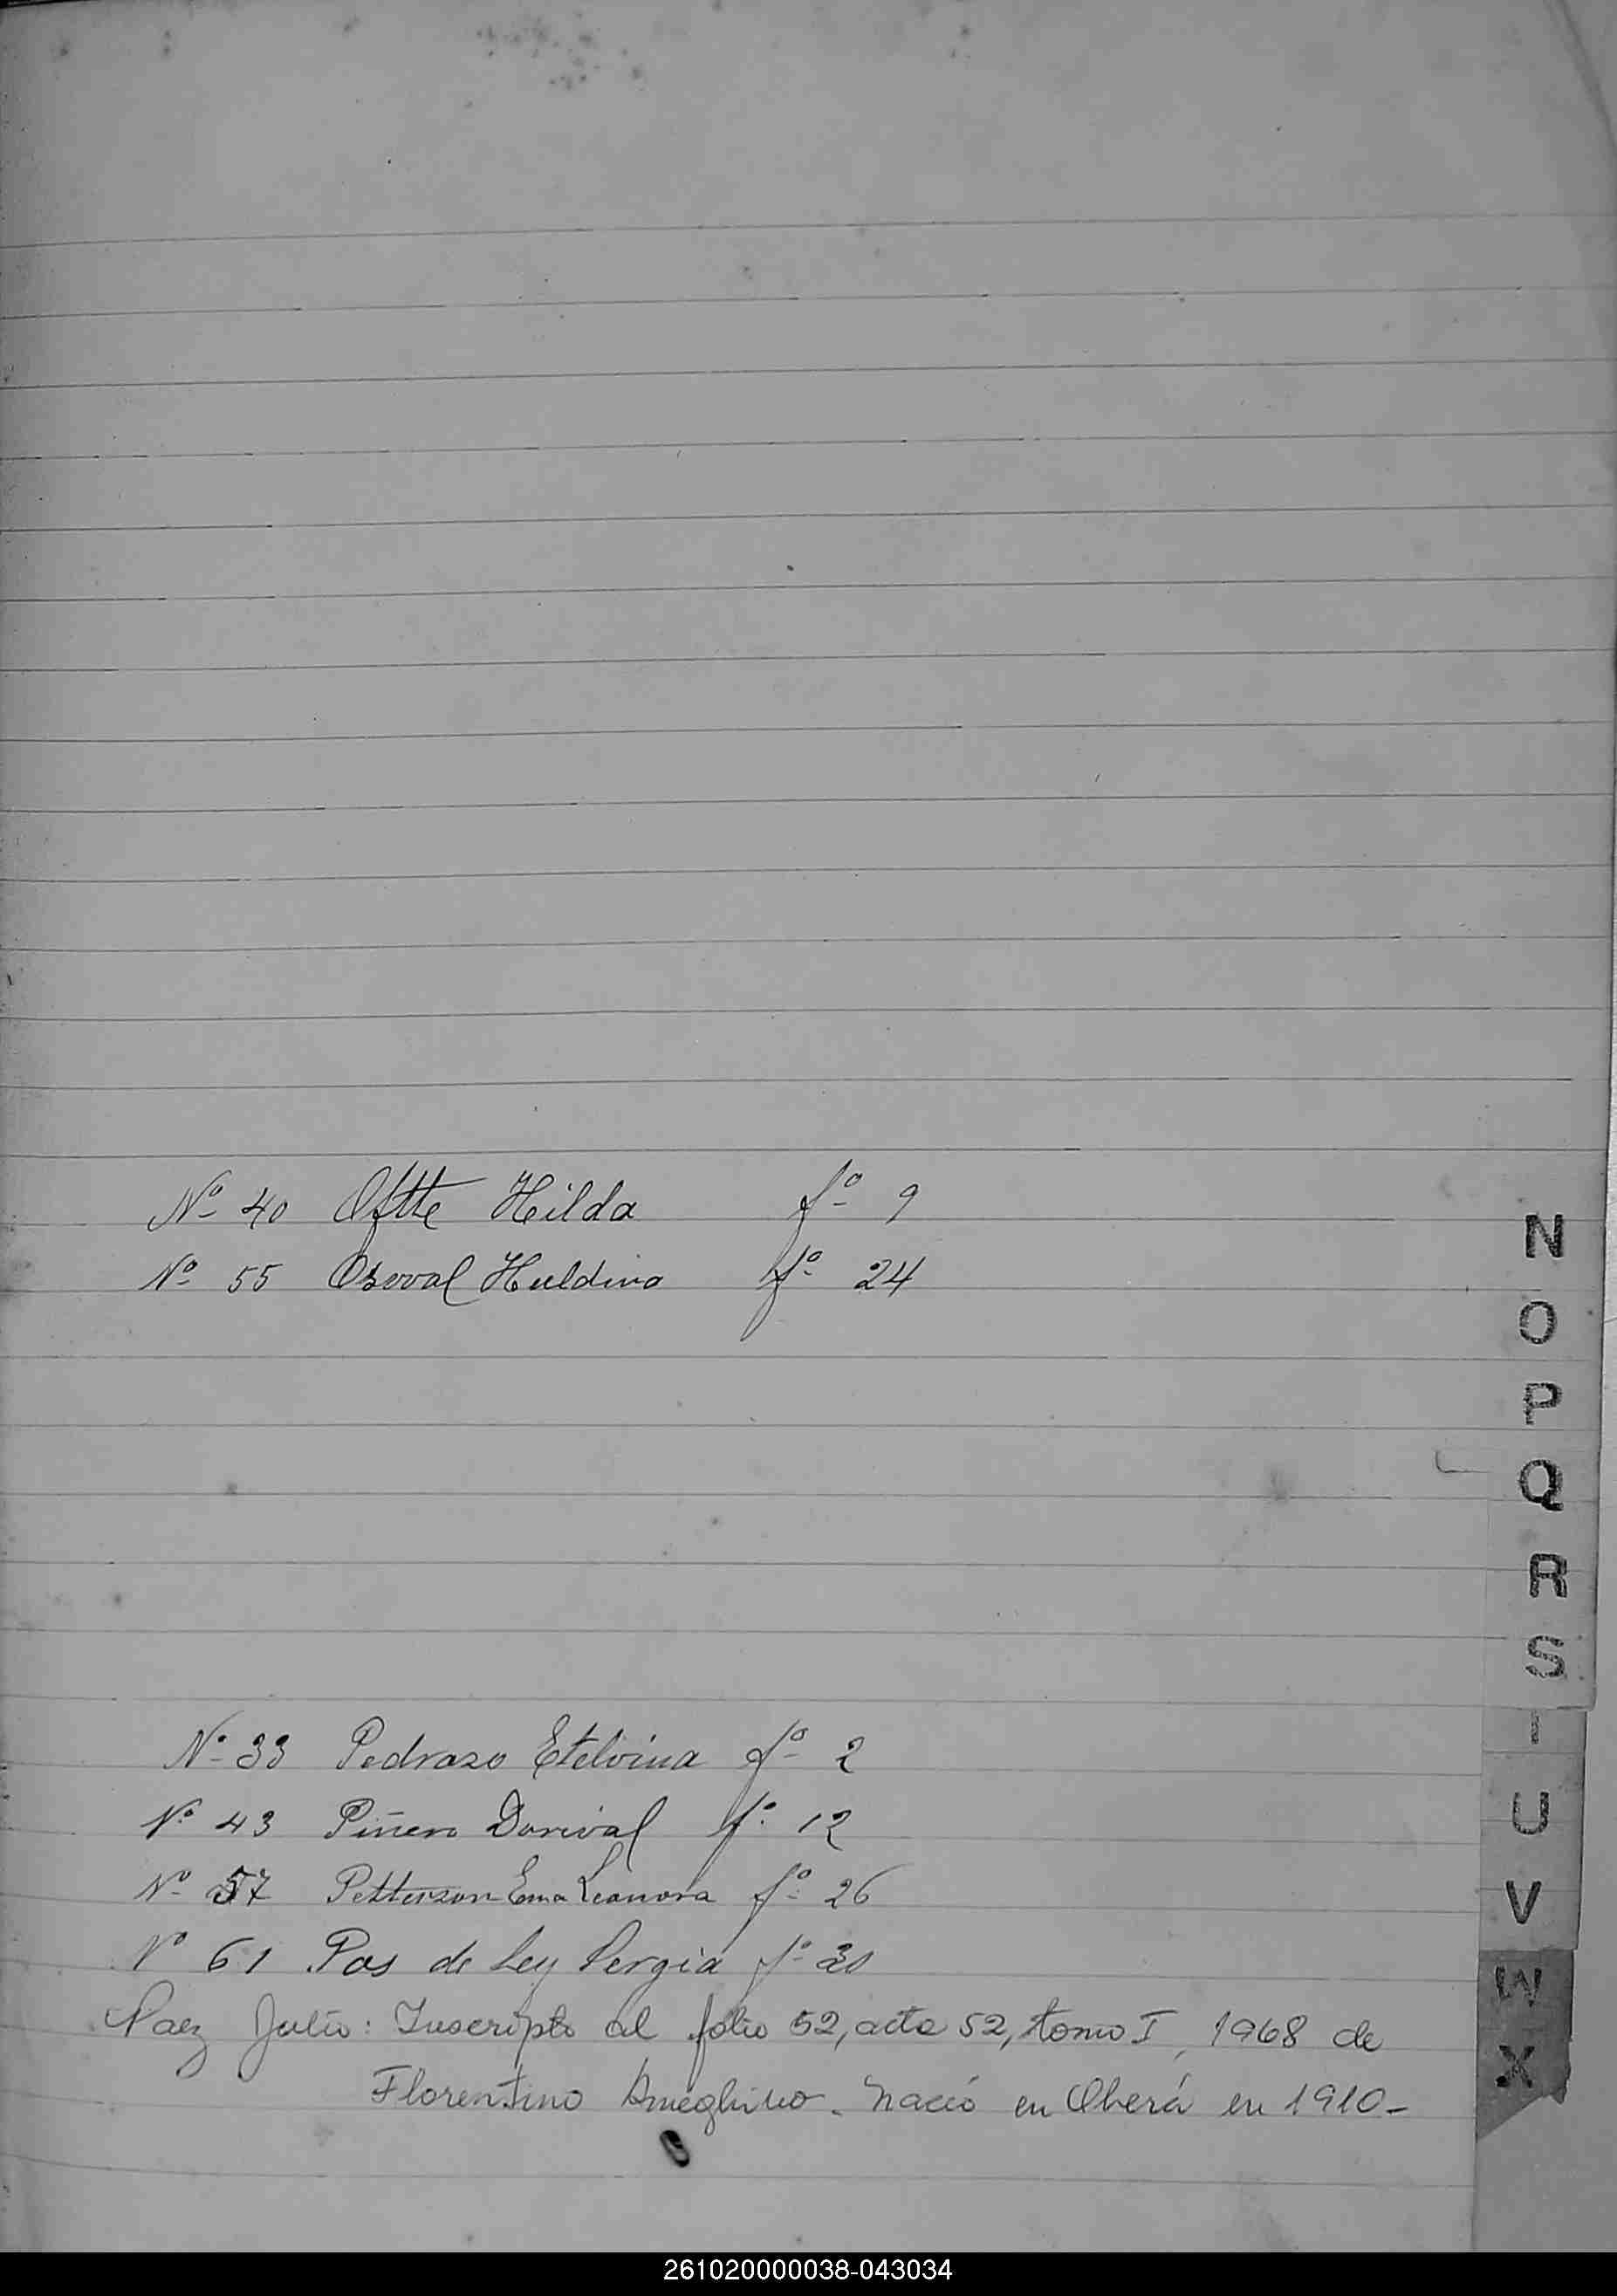 Nº 40 Oftte Hilda fº 9
Nº 55 Osoval Huldino fº 24
Nº 33 Pedrazo Etelvina fº 2
Nº 43 Piñero Dorival fº 12
Nº 57 Petterson Ema Leanora fº 26
Nº 61 Pas de Ley Sergia fº 30
Paez Julio: Inscripto al folio 52, acta 52, tomo I, 1968 de
Florentino Ameghino. Nació en Oberá en 1910-
N
O
P
Q
R
S
T
U
V
W
X
261020000038-043034